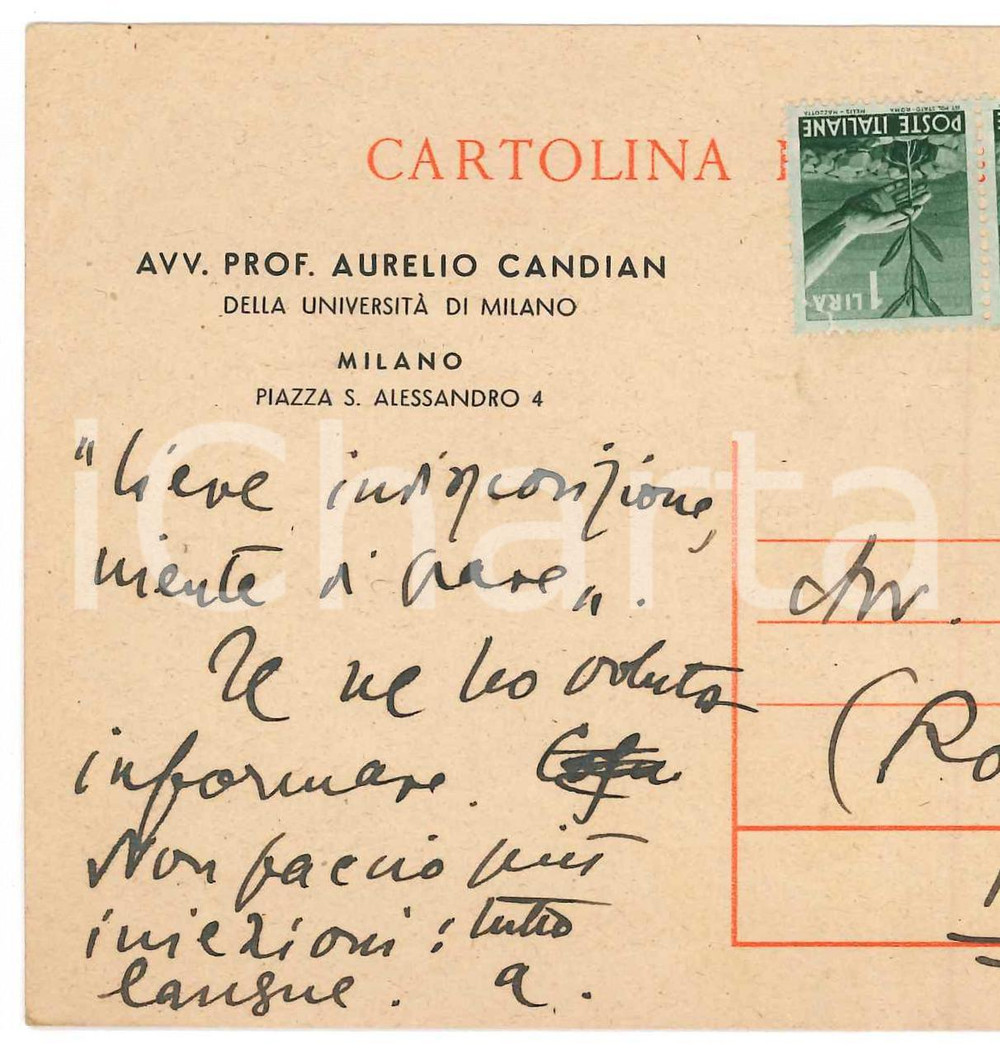 CARTOLINA
AVV. PROF. AURELIO CANDIAN
DELLA UNIVERSITÀ DI MILANO
MILANO
PIAZZA S. ALESSANDRO 4
POSTE ITALIANE
1 LIRA
iCharta
"lieve indisposizione,
niente di grave".
Te ne ho voluto
informare.
Non faccio più
iniezioni: tutto
langue. a.
Avv.
(Ro